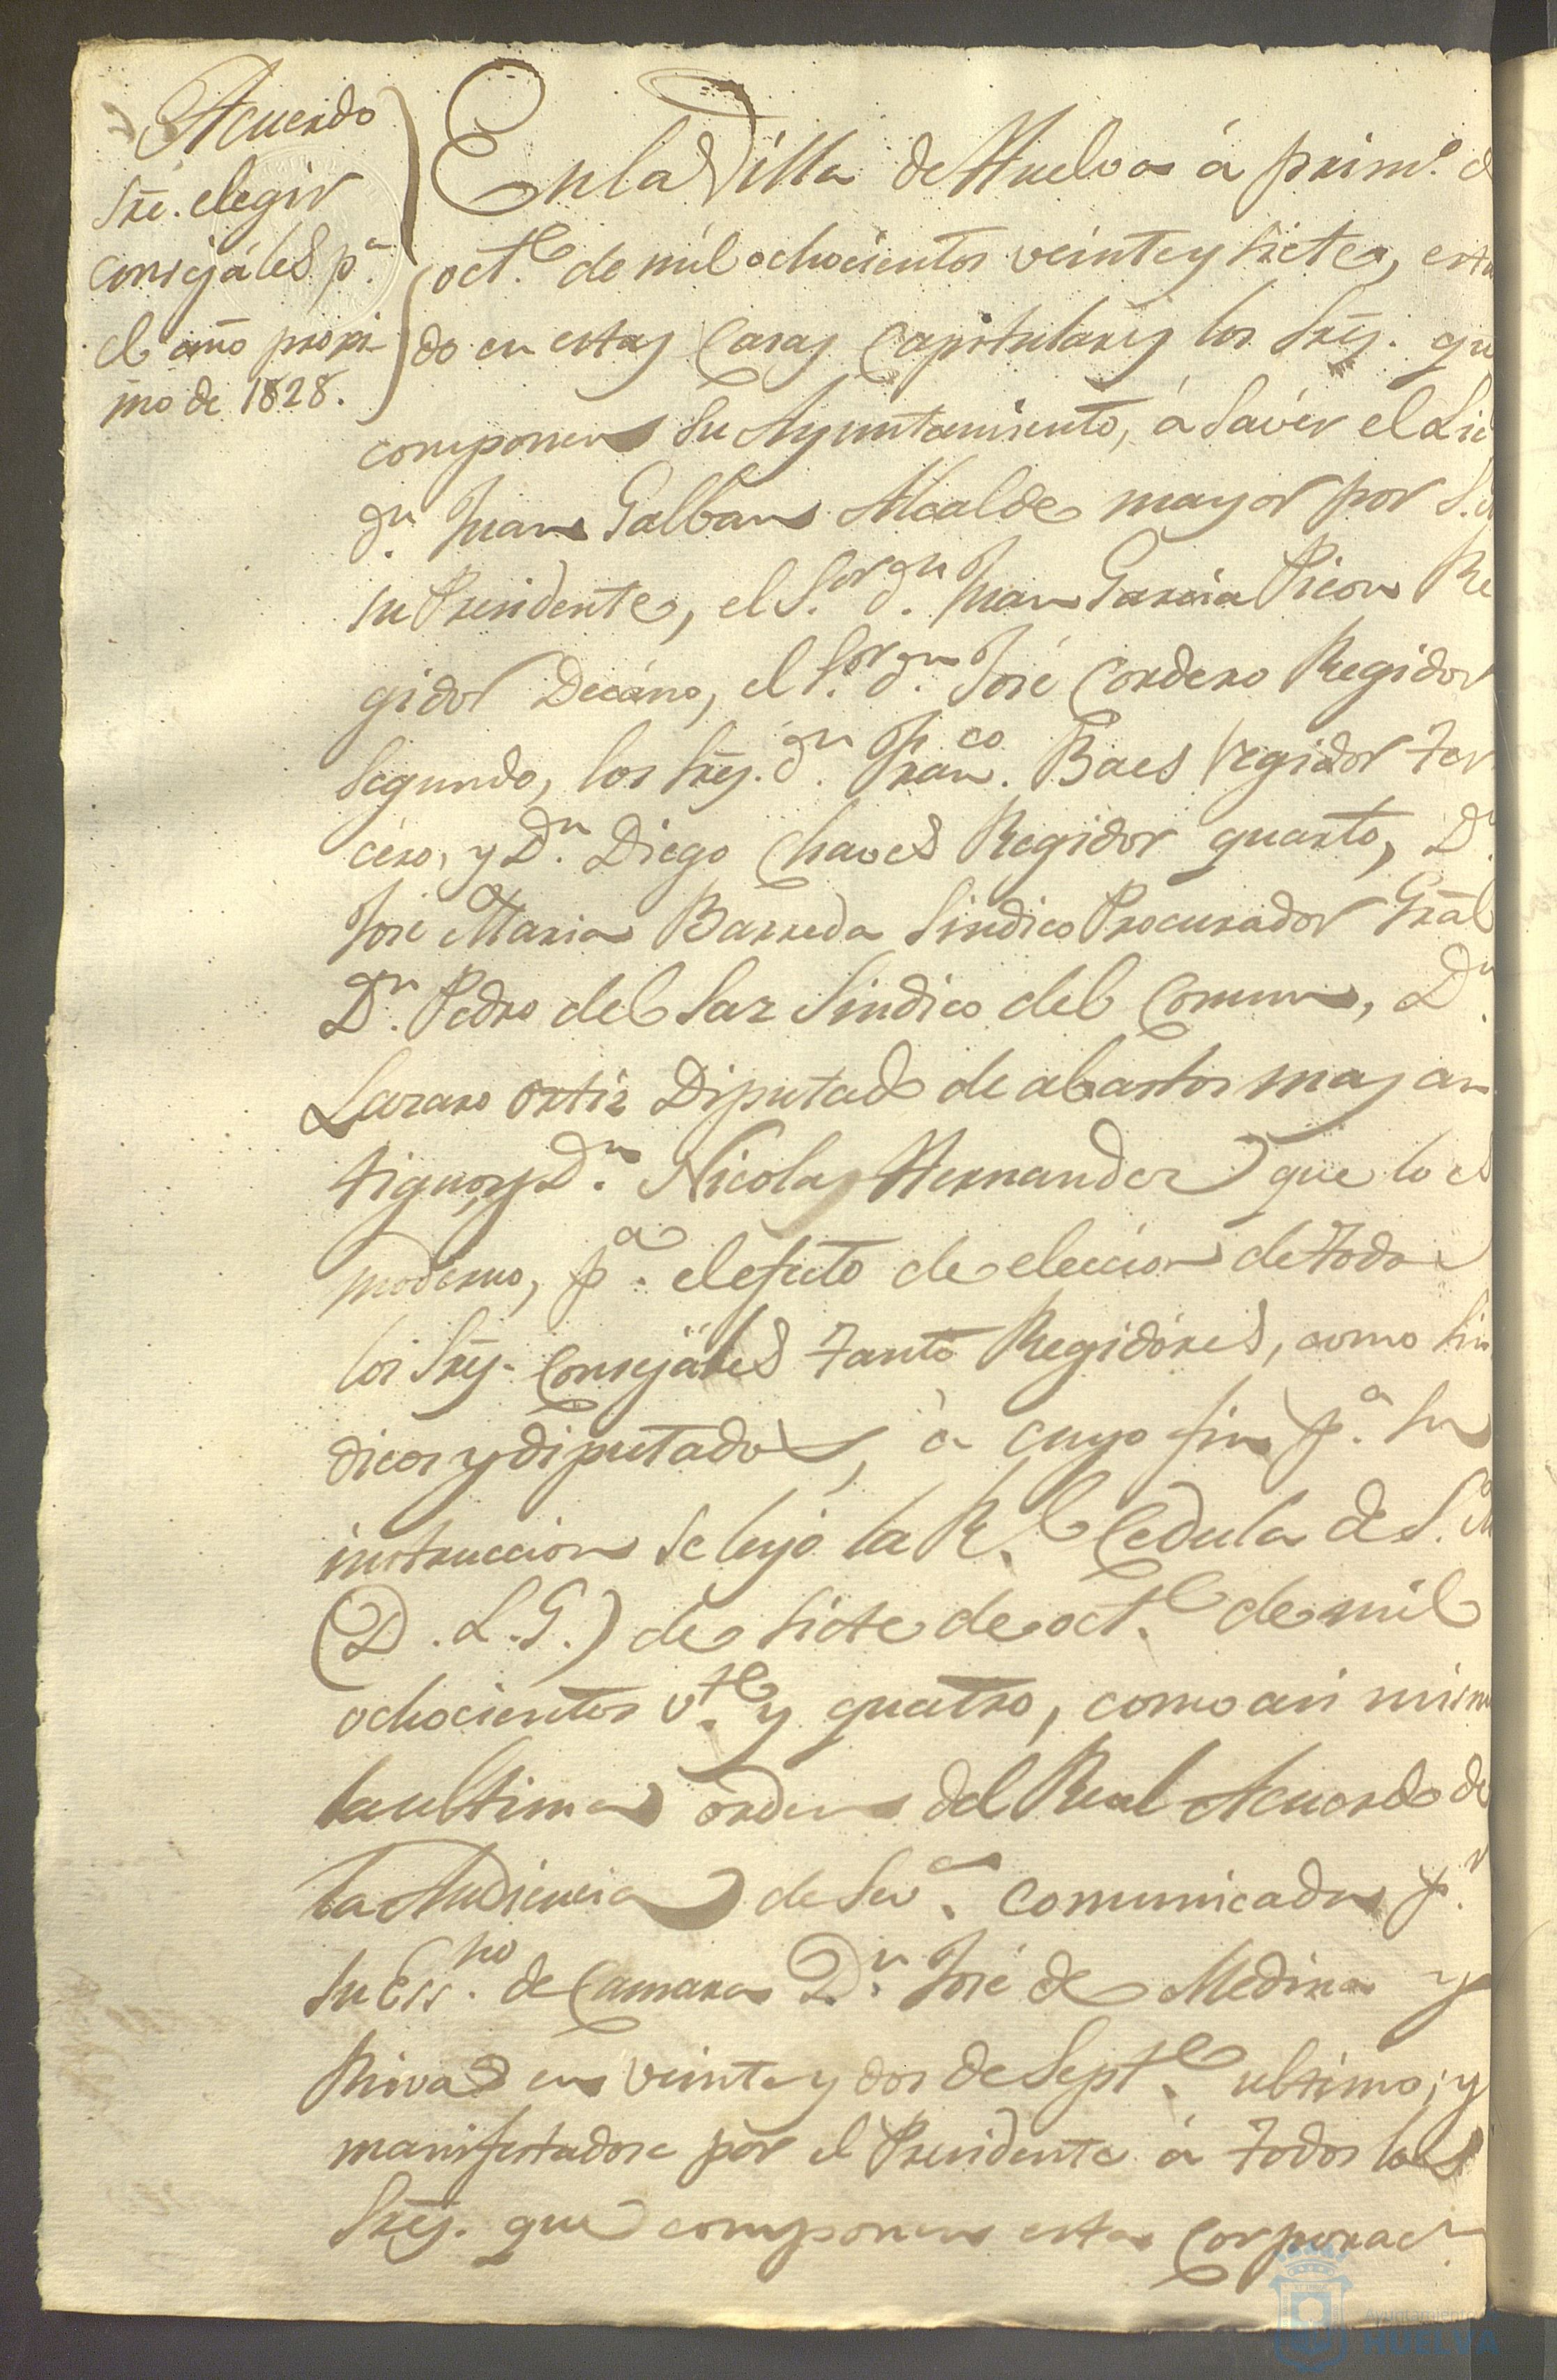 Acuerdo
sre. elegir
consejáles pª
el año procsi-
mo de 1828.
En la Villa de Huelva á primº d
octe. de mil ochocientos veinte y siete, esta
do en estas Casas Capitulares los Sres. qu
componen su Ayuntamiento, á savér el Lic
dn. Juan Galban Alcalde mayor por S.
su Presidente, el Sor. dn. Juan Garcia Picon Re
gidor Decáno, el Sor. dn. José Cordero Regidor
segundo, los Sres. dn. Franco. Baes regidor ter
céro, y Dn. Diego Chaves Regidor quarto, Dn.
José Maria Barreda Sindico Procurador Gral
Dn. Pedro del Saz Sindico del Comun, Dn.
Lazaro Ortiz Diputado de abastos mas an
tiguo, y Dn. Nicolas Hernandez que lo es
moderno, pª. el efecto de eleccion de todo
los Sres. Consejáles tanto Regidóres, como Sin
dicos y diputados, á cuyo fin pª. su
instruccion se leyó la Rl. Cedula de S. M
(D. L. G.) de siete de octe. de mil
ochocientos vte. y quatro, como asi mismo
la ultima orden del Real Acuerdo de
la Audiencia de Sevª. comunicada pr.
su Essno. de Camara Dn. José de Medina y
Rivas en veinte y dos de Septe. ultimo; y
manifestadose por el Presidente á todos los
Sres. que componen esta Corporacn
Ayuntamiento
HUELVA